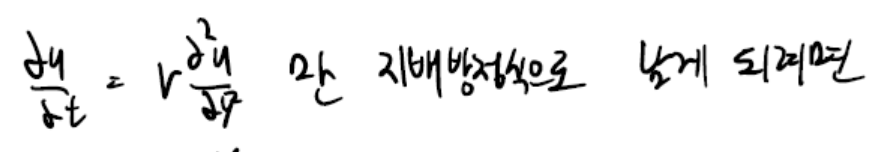 ∂u/∂t = ν ∂²u/∂y² 만 지배방정식으로 남게 되려면